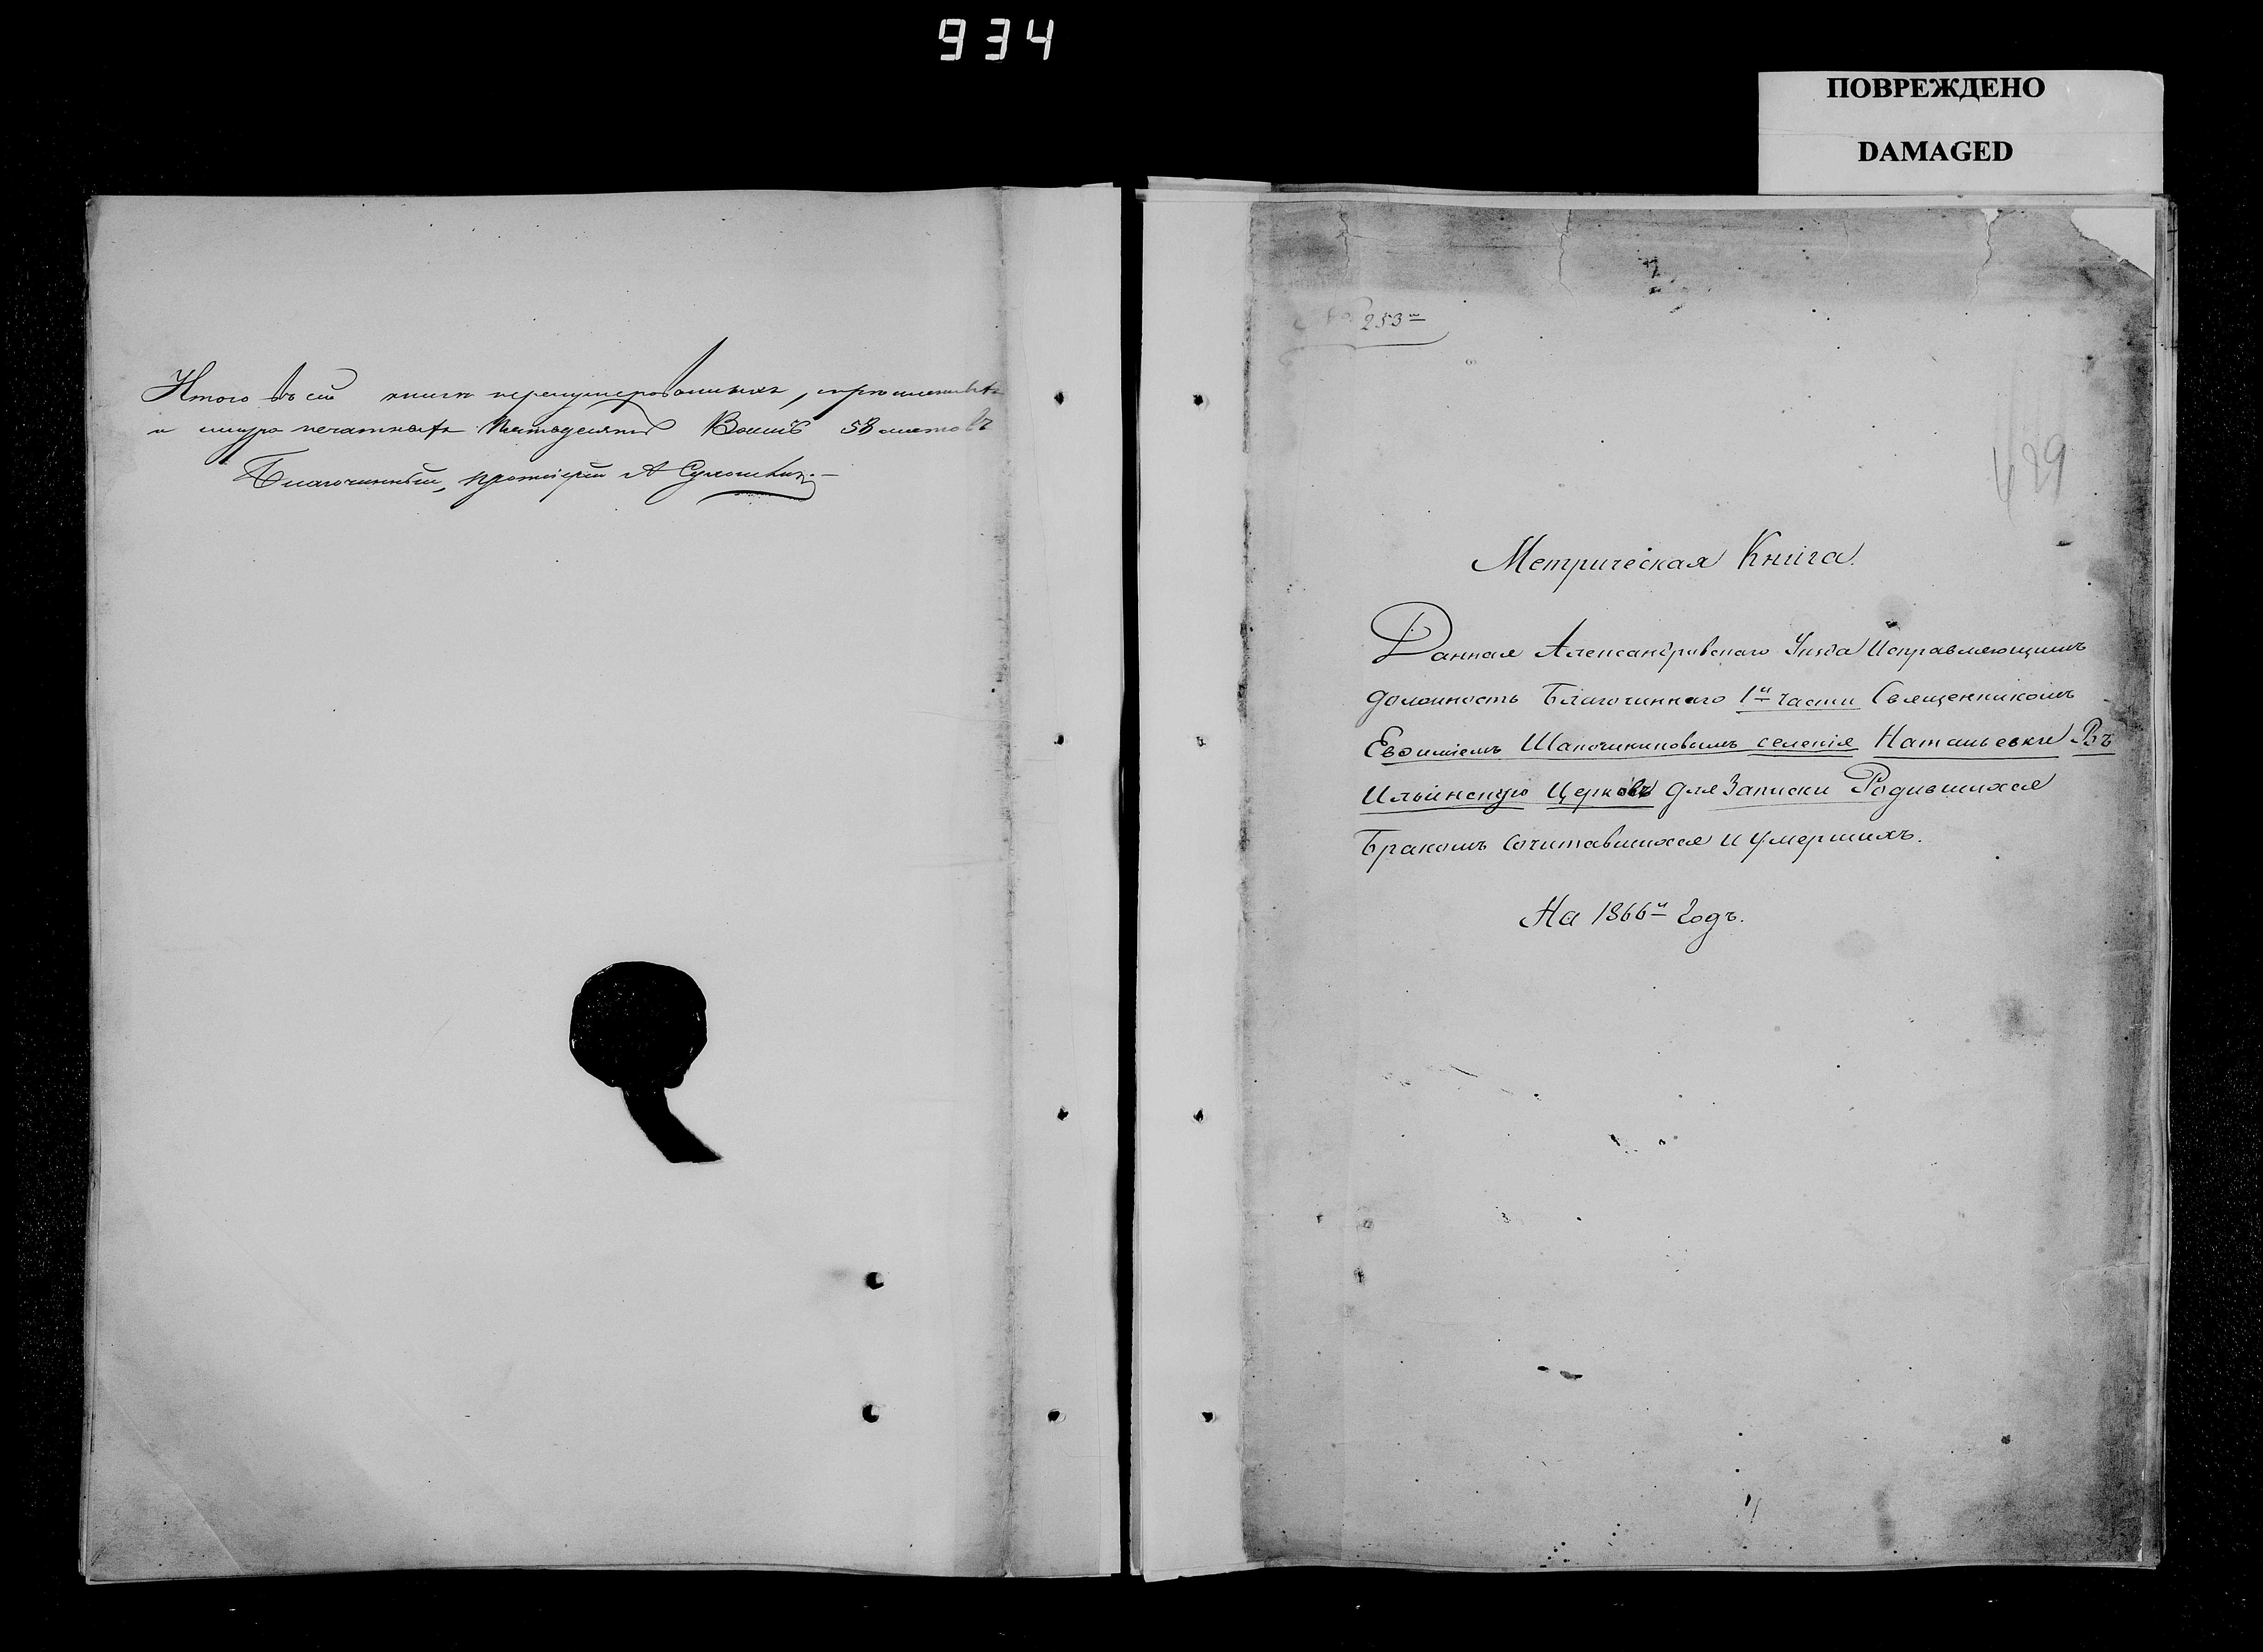 934
ПОВРЕЖДЕНО
DAMAGED
Итого въ сей книги перенумерованныхъ, прошнеков
и шнуро печатныхъ Пятьдесятъ Восмь 58 листовъ
Благочинный, протоіерей А
253й
429
Метрическая Книга.
Данная Александровскаго Уѣзда Исправляющимъ
должность Благочиннаго 1й части Священникомъ
Евѳиміемъ Шапочкиновымъ селенія Натальевки Въ
Ильинскую Церковь для Записки Родившихся
Бракомъ сочитавшихся и умершихъ.
На 1866й Годъ.